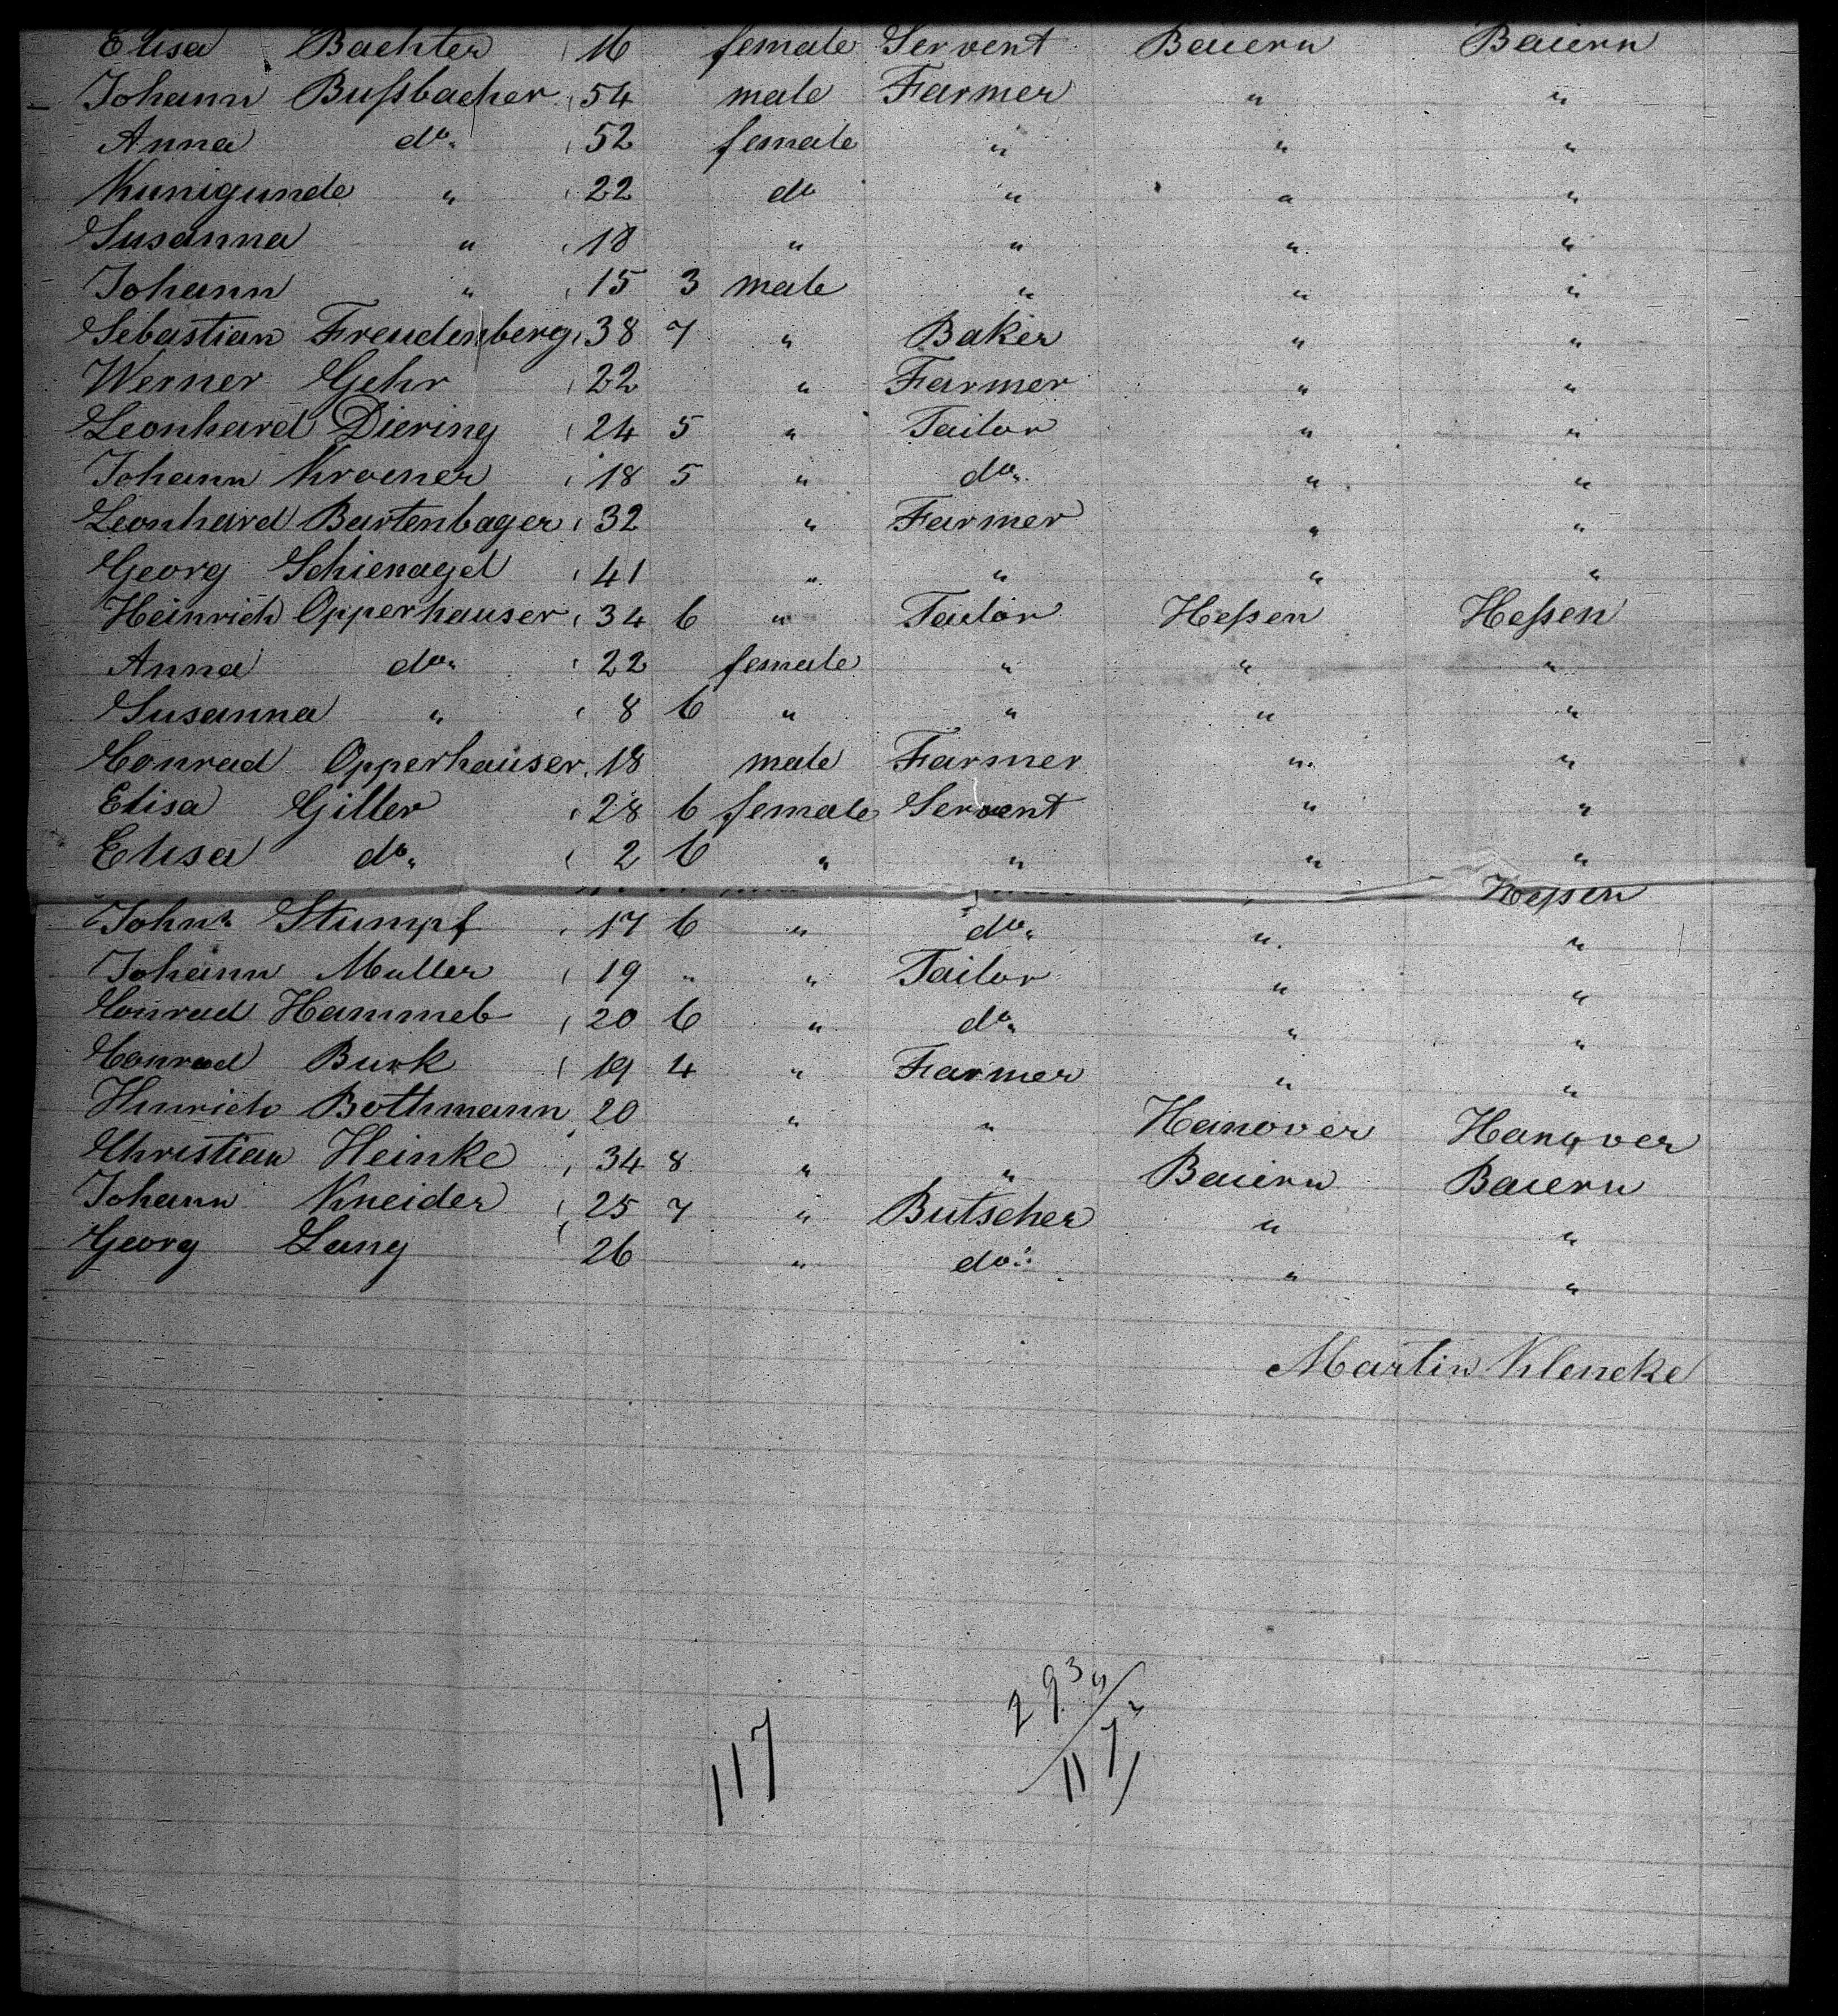 Elisa Bachter 16 female Servent Baiern Baiern
Johann Bußbacher 54 male Farmer " "
Anna do. 52 female " " "
Kunigunde " 22 do " " "
Susanna " 18 " " " "
Johann " 15 3 male " " "
Sebastian Freudenberg 38 7 " Baker " "
Werner Gehr 22 " Farmer " "
Leonhard Diering 24 5 " Tailor " "
Johann Kroener 18 5 " do. " "
Leonhard Bartenbager 32 " Farmer " "
Georg Schienagel 41 " " " "
Heinrich Opperhauser 34 6 " Tailor Heßen Heßen
Anna do. 22 female " " "
Susanna " 8 6 " " " "
Conrad Opperhauser 18 male Farmer " "
Elisa Giller 28 6 female Servent " "
Elisa do. 2 6 " " " "
Heßen
John Stumpf 17 6 " do. " "
Johann Muller 19 " " Tailor " "
Conrad Hammel 20 6 " do. " "
Conrad Burk 19 4 " Farmer " "
Hinrich Bothmann 20 " " Hanover Hanover
Christian Heinke 34 8 " " Baiern Baiern
Johann Kneider 25 7 " Butscher " "
Georg Lang 26 " do. " "
Martin Klencke
117